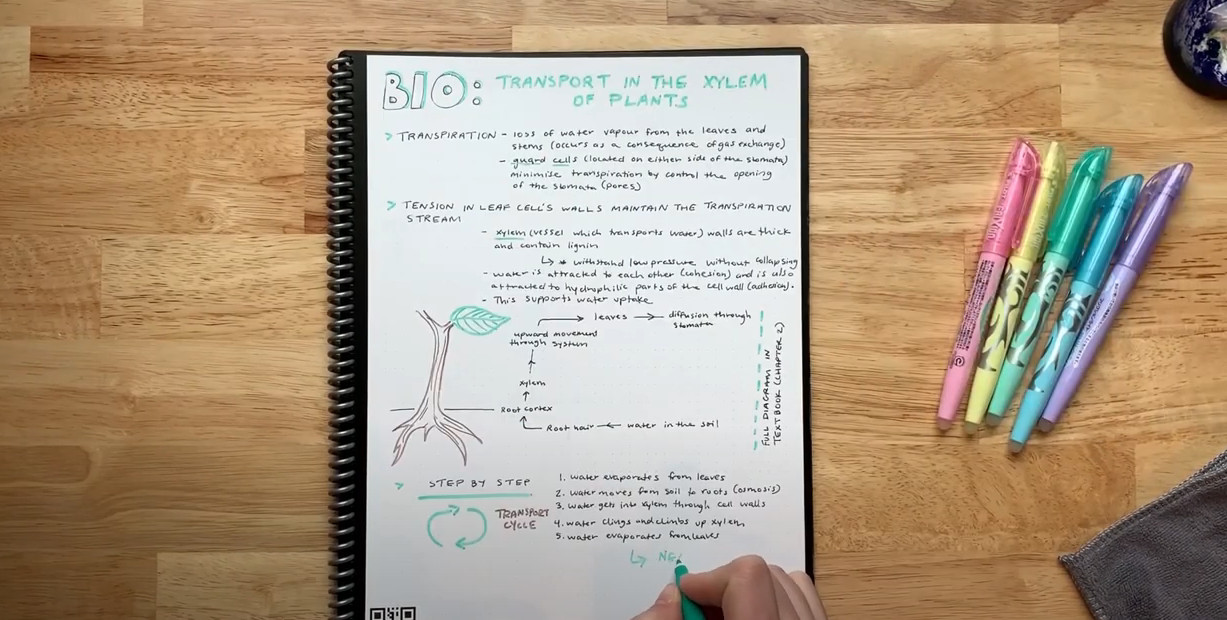 BIO: TRANSPORT IN THE XYLEM
OF PLANTS
> TRANSPIRATION - loss of water vapour from the leaves and
stems (occurs as a consequence of gas exchange)
- guard cells (located on either side of the stomata)
minimise transpiration by control the opening
of the stomata (pores)
> TENSION IN LEAF CELL'S WALLS MAINTAIN THE TRANSPIRATION
STREAM
- xylem (vessel which transports water) walls are thick
and contain lignin
↳ * withstand low pressure without collapsing
- water is attracted to each other (cohesion) and is also
attracted to hydrophilic parts of the cell wall (adhesion).
- This supports water uptake
leaves → diffusion through
stomata
upward movement
through system
xylem
Root cortex
Root hair ← water in the soil
FULL DIAGRAM IN
TEXTBOOK (CHAPTER 2)
> STEP BY STEP
TRANSPORT
CYCLE
1. water evaporates from leaves
2. water moves from soil to roots (osmosis)
3. water gets into xylem through cell walls
4. water clings and climbs up xylem
5. water evaporates from leaves